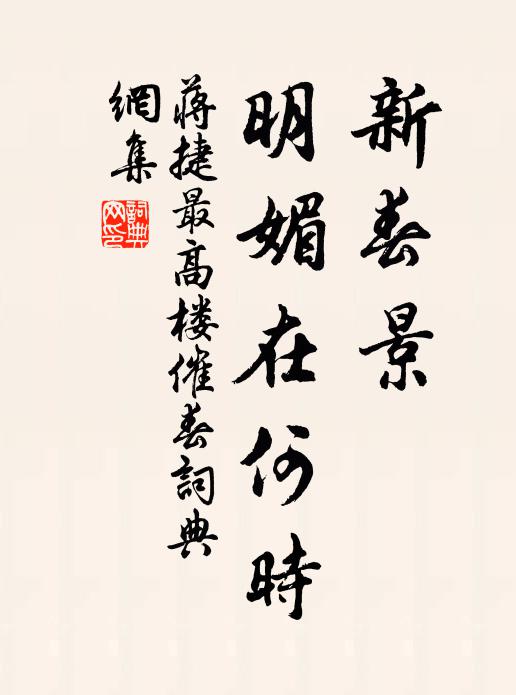 新春景
明媚在何時
蔣捷最高楼催春詞典
網集
詞典
网印